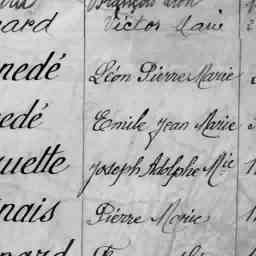 ard Victor Marie
nedé Léon Pierre Marie
edé Emile Jean Marie
uette Joseph Adolphe Mie
nais Pierre Marie
nard